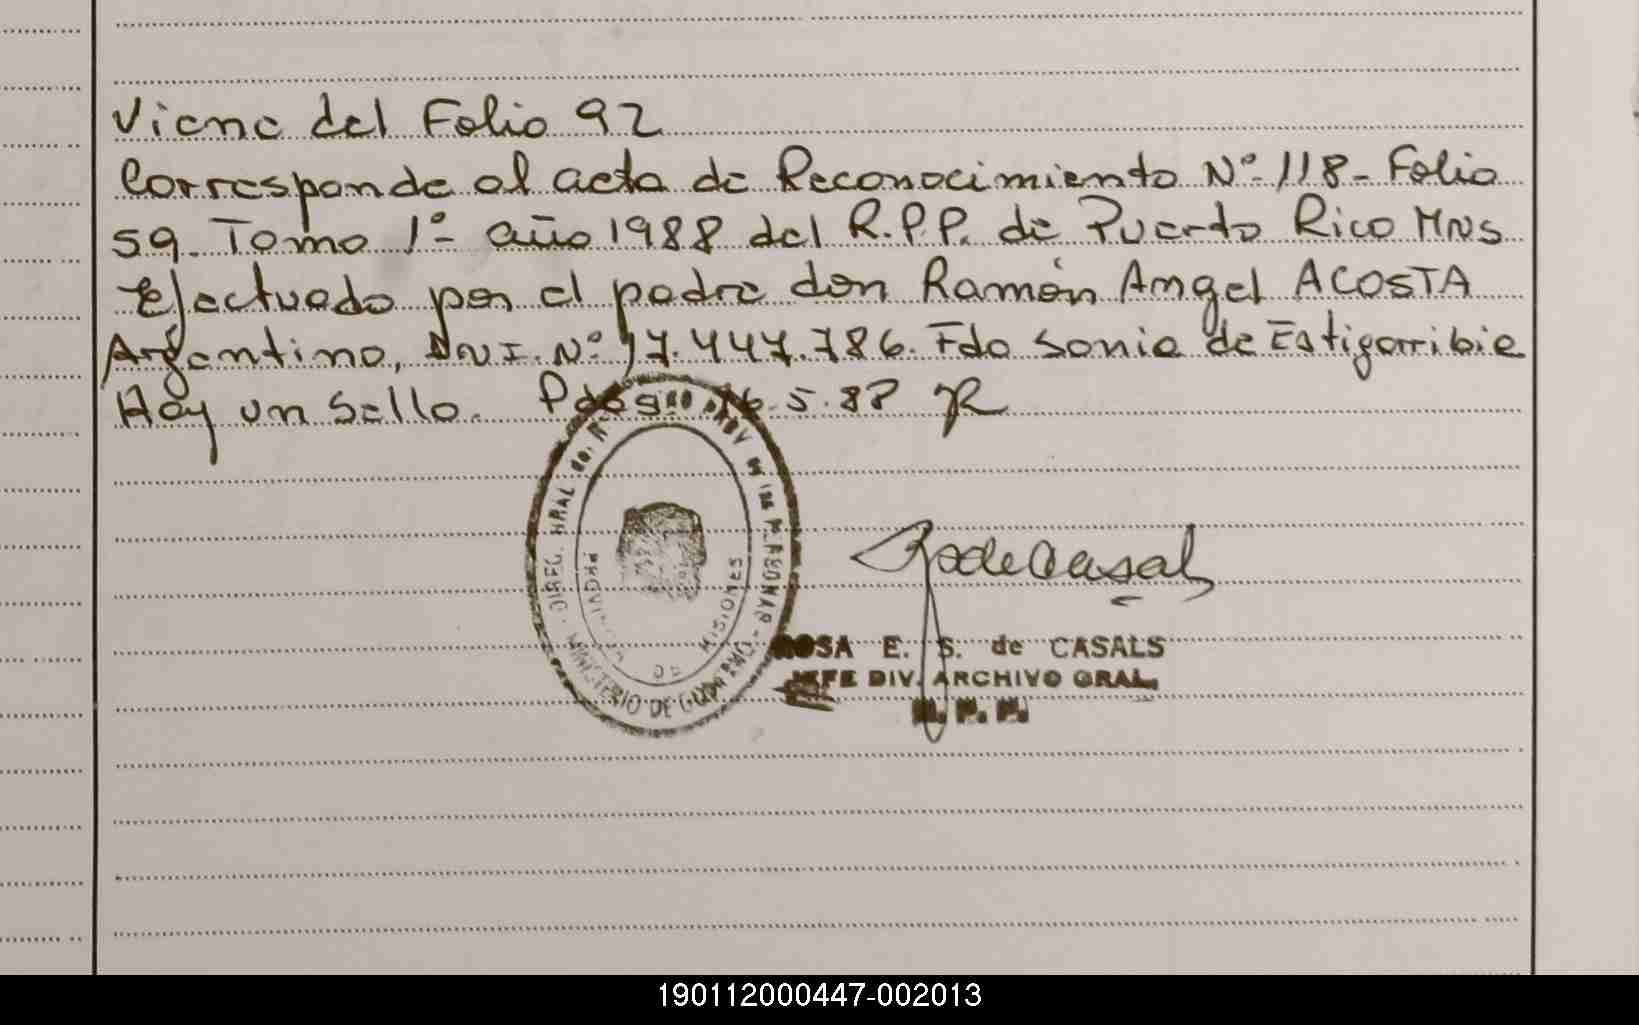 Viene del Folio 92
Corresponde al acta de Reconocimiento Nº 118- Folio
59. Tomo 1º- año 1988 del R.P.P. de Puerto Rico Mns
Efectuado por el padre don Ramón Angel ACOSTA
Argentino, DNI. Nº 17.447.786. Fdo Sonia de Estigarribia
Hay un Sello. Pdas 16.5.88
DIREC. GRAL DEL DE LAS PERSONAS - MINISTERIO DE GOBIERNO
PROVINCIA DE MISIONES
RosdeCasals
ROSA E. S. de CASALS
JEFE DIV. ARCHIVO GRAL.
R. P. P.
190112000447-002013